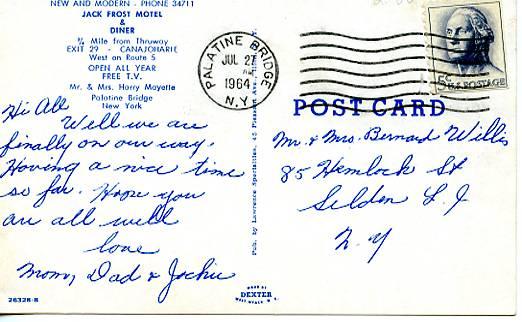 NEW AND MODERN - PHONE 34711
JACK FROST MOTEL
&
DINER
¾ Mile from Thruway
EXIT 29 - CANAJOHARIE
West on Route 5
OPEN ALL YEAR
FREE T.V.
Mr. & Mrs. Harry Mayette
Palatine Bridge
New York
Hi All
Well we are
finally on our way.
Having a nice time
so far. Hope you
are all well
love
Mom, Dad & Jackie
26328-B
Pub. by Lawrence Specialties, 45 Pleasant
MADE BY
DEXTER
WEST NYACK N. Y.
PALATINE BRIDGE
JUL 27
1964
N.Y.
5¢ U.S. POSTAGE
POST CARD
Mr. & Mrs. Bernard Willis
85 Hemlock St
Selden L. I
N. Y